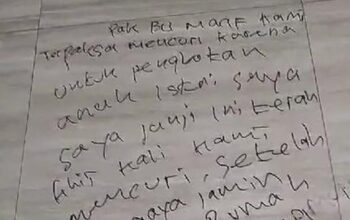 Pak Bu maaf kami
Terpaksa mencuri karena
untuk pengobatan
anak Istri saya
saya janji ini terah
hir kali kami
mencuri, setelah
saya jamin
rumah